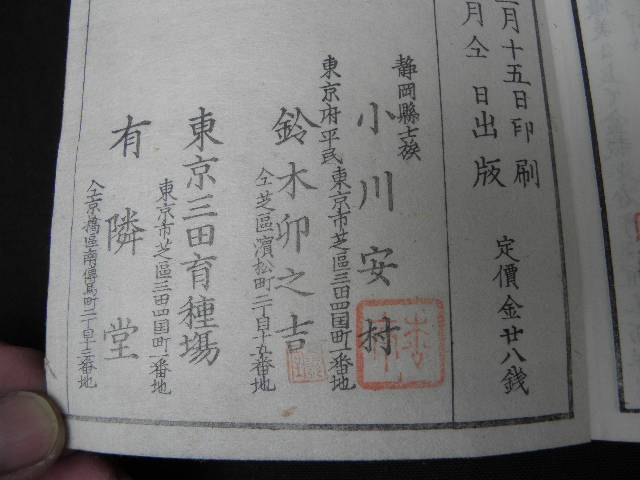 月十五日印刷
月仝 日出版
定價金廿八錢
靜岡縣士族
小川安村
東京市芝區三田四国町一番地
東京府平民
鈴木卯之吉
仝芝區濱松町二丁目十五番地
東京三田育種場
東京市芝區三田四国町一番地
有隣堂
仝京橋區南傳馬町二丁目十三番地